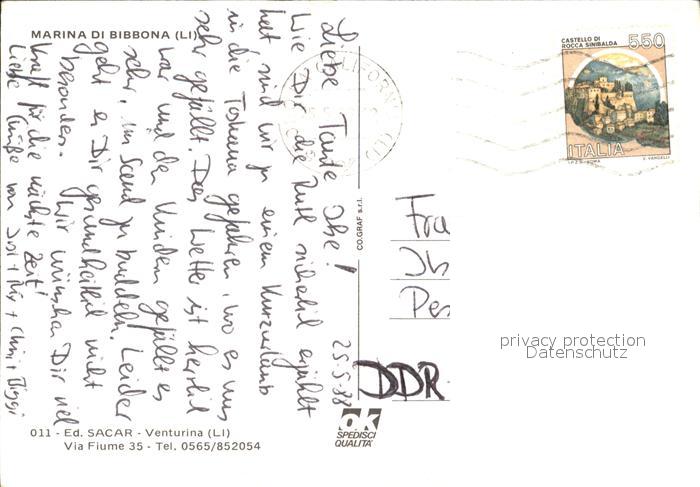 MARINA DI BIBBONA (LI)
Liebe Tante Ihe!
Wie Dir die Mutti sicherlich erzählt
hat sind wir zu einem Kurzurlaub
in die Toskana gefahren, wo es uns
sehr gefällt. Das Wetter ist herrlich
war und den Kindern gefällt es
sehr, im Sand zu buddeln. Leider
geht es Dir gesundheitlich nicht
besonders. Wir wünschen Dir viel
Kraft für die nächste Zeit!
Liebe Grüße von
25.5.88
CO.GRAF s.r.l.
CALIFORNI
CASTELLO DI
ROCCA SINIBALDA
550
ITALIA
I.P.Z.S. - ROMA
E. VANGELLI
Fra
DDR
privacy protection
Datenschutz
ok
SPEDISCI
QUALITA'
011 - Ed. SACAR - Venturina (LI)
Via Fiume 35 - Tel. 0565/852054